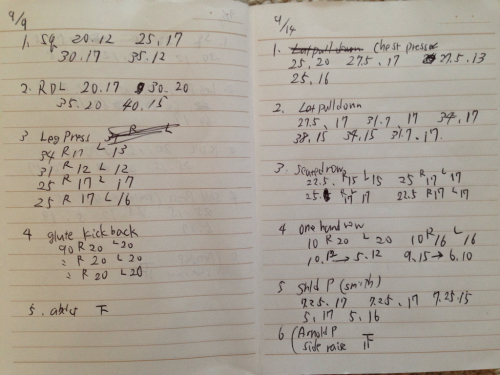 4/9
1. SQ 20.12 25.17
30.17 35.12
2. RDL 20.17 30.20
35.20 40.15
3 Leg Press
34 R 17 L 13
31 R 12 L 12
25 R 17 L 17
25 R 17 L 16
4 glute kickback
90 R 20 L 20
= R 20 L 20
= R 20 L 20
5.
4/14
1. Lat pull down Chest press
25.20 27.5.17 27.5.13
25.16
2. Lat pull down
27.5.17 31.7.17 34.17
38.15 34.15 31.7.17.
3. Seated row
22.5.R15 L15 25 R17 L17
25. R17 L17 22.5 R17 L17
4 one hand row
10 R20 L20 10 R16 L16
10.12 → 5.12 9.15 → 6.10
5 Shld P (smith)
7.25.17 7.25.17 7.25.15
5.17 5.16
6 (Arnold P 下
side raise 下